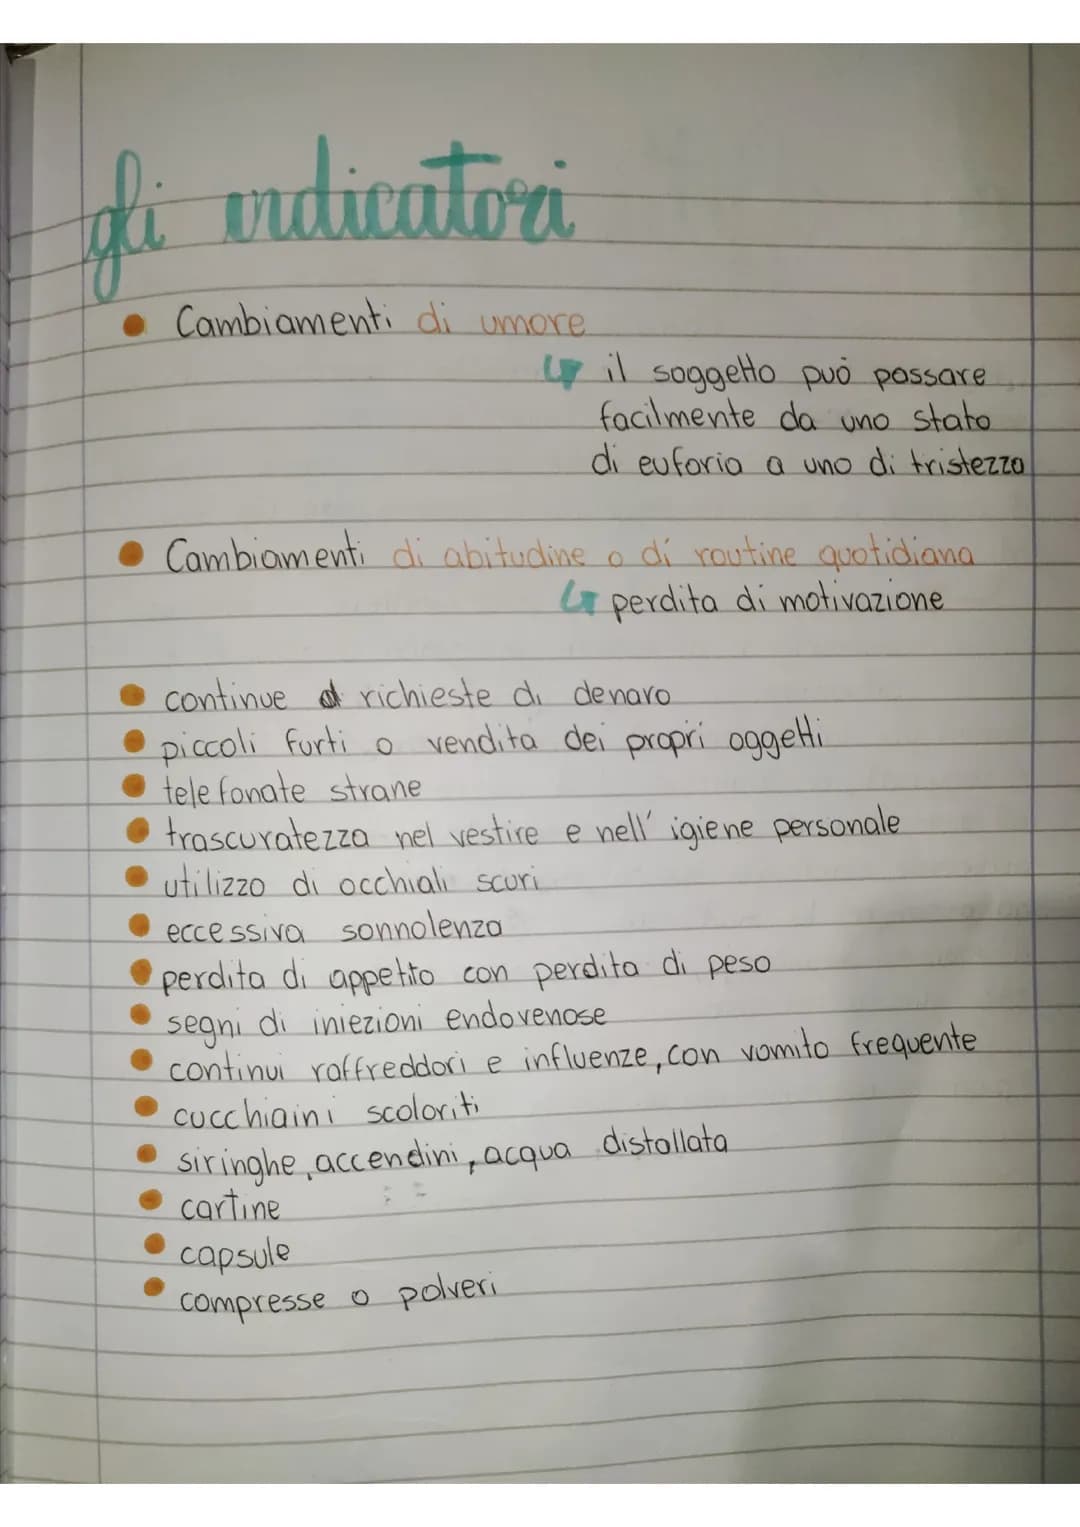 gli indicatori
Cambiamenti di umore
il soggetto può passare
facilmente da uno stato
di euforia a uno di tristezza
Cambiamenti di abitudine o di routine quotidiana
perdita di motivazione
continue richieste di denaro
piccoli furti o vendita dei propri oggetti
telefonate strane
trascuratezza nel vestire e nell' igiene personale
utilizzo di occhiali scuri
eccessiva sonnolenza
perdita di appetito con perdita di peso
segni di iniezioni endovenose
continui raffreddori e influenze, con vomito frequente
cucchiaini scoloriti
siringhe, accendini, acqua distallata
cartine
capsule
compresse o polveri